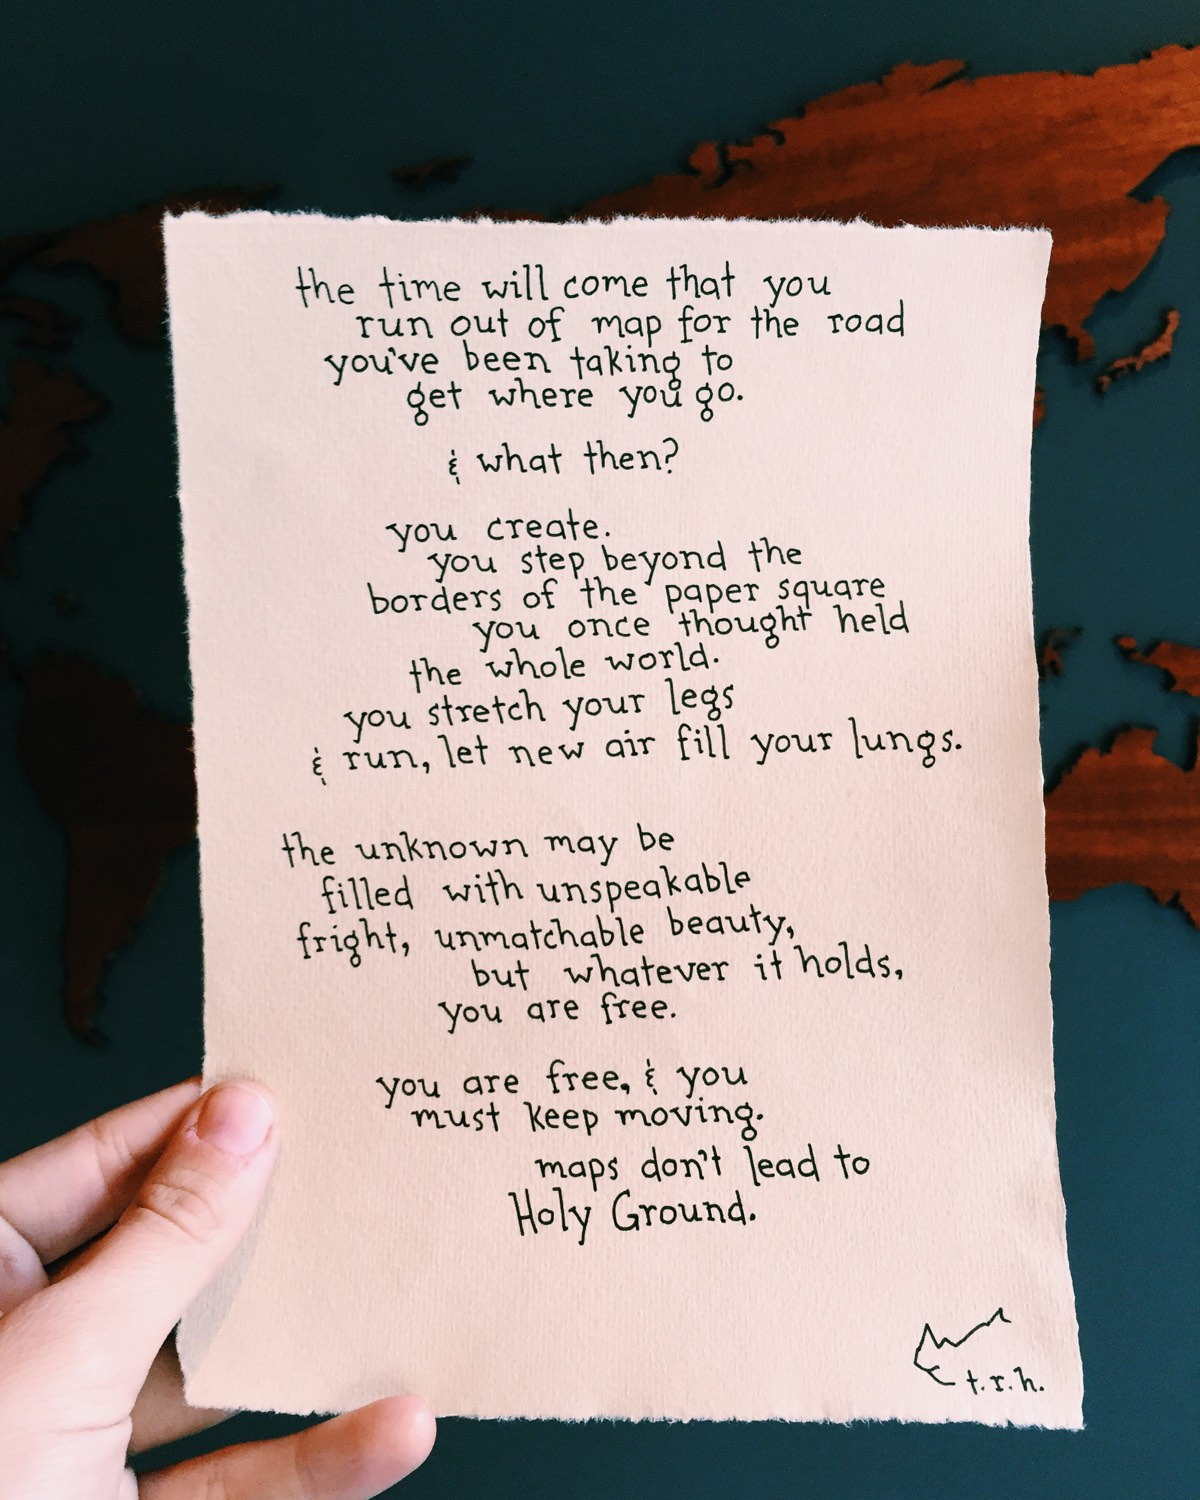 the time will come that you
run out of map for the road
you've been taking to
get where you go.
& what then?
you create.
you step beyond the
borders of the paper square
you once thought held
the whole world.
you stretch your legs
& run, let new air fill your lungs.
the unknown may be
filled with unspeakable
fright, unmatchable beauty,
but whatever it holds,
you are free.
you are free, & you
must keep moving.
maps don't lead to
Holy Ground.
t.r.h.